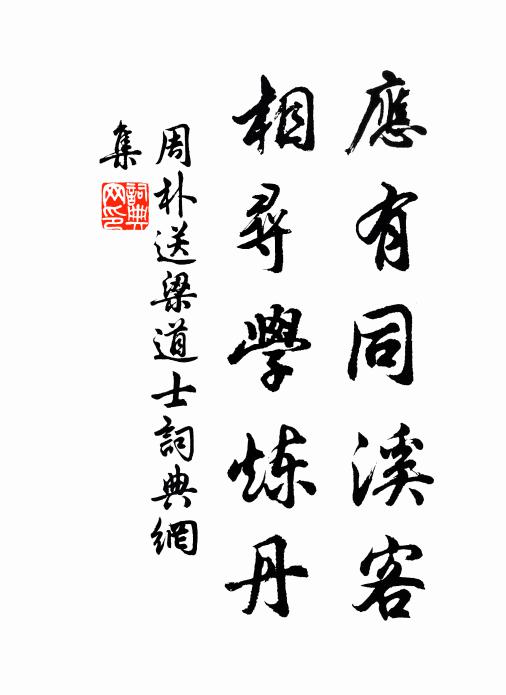 應有同溪客
相尋學炼丹
周朴送梁道士詞典網
集
詞典
网印